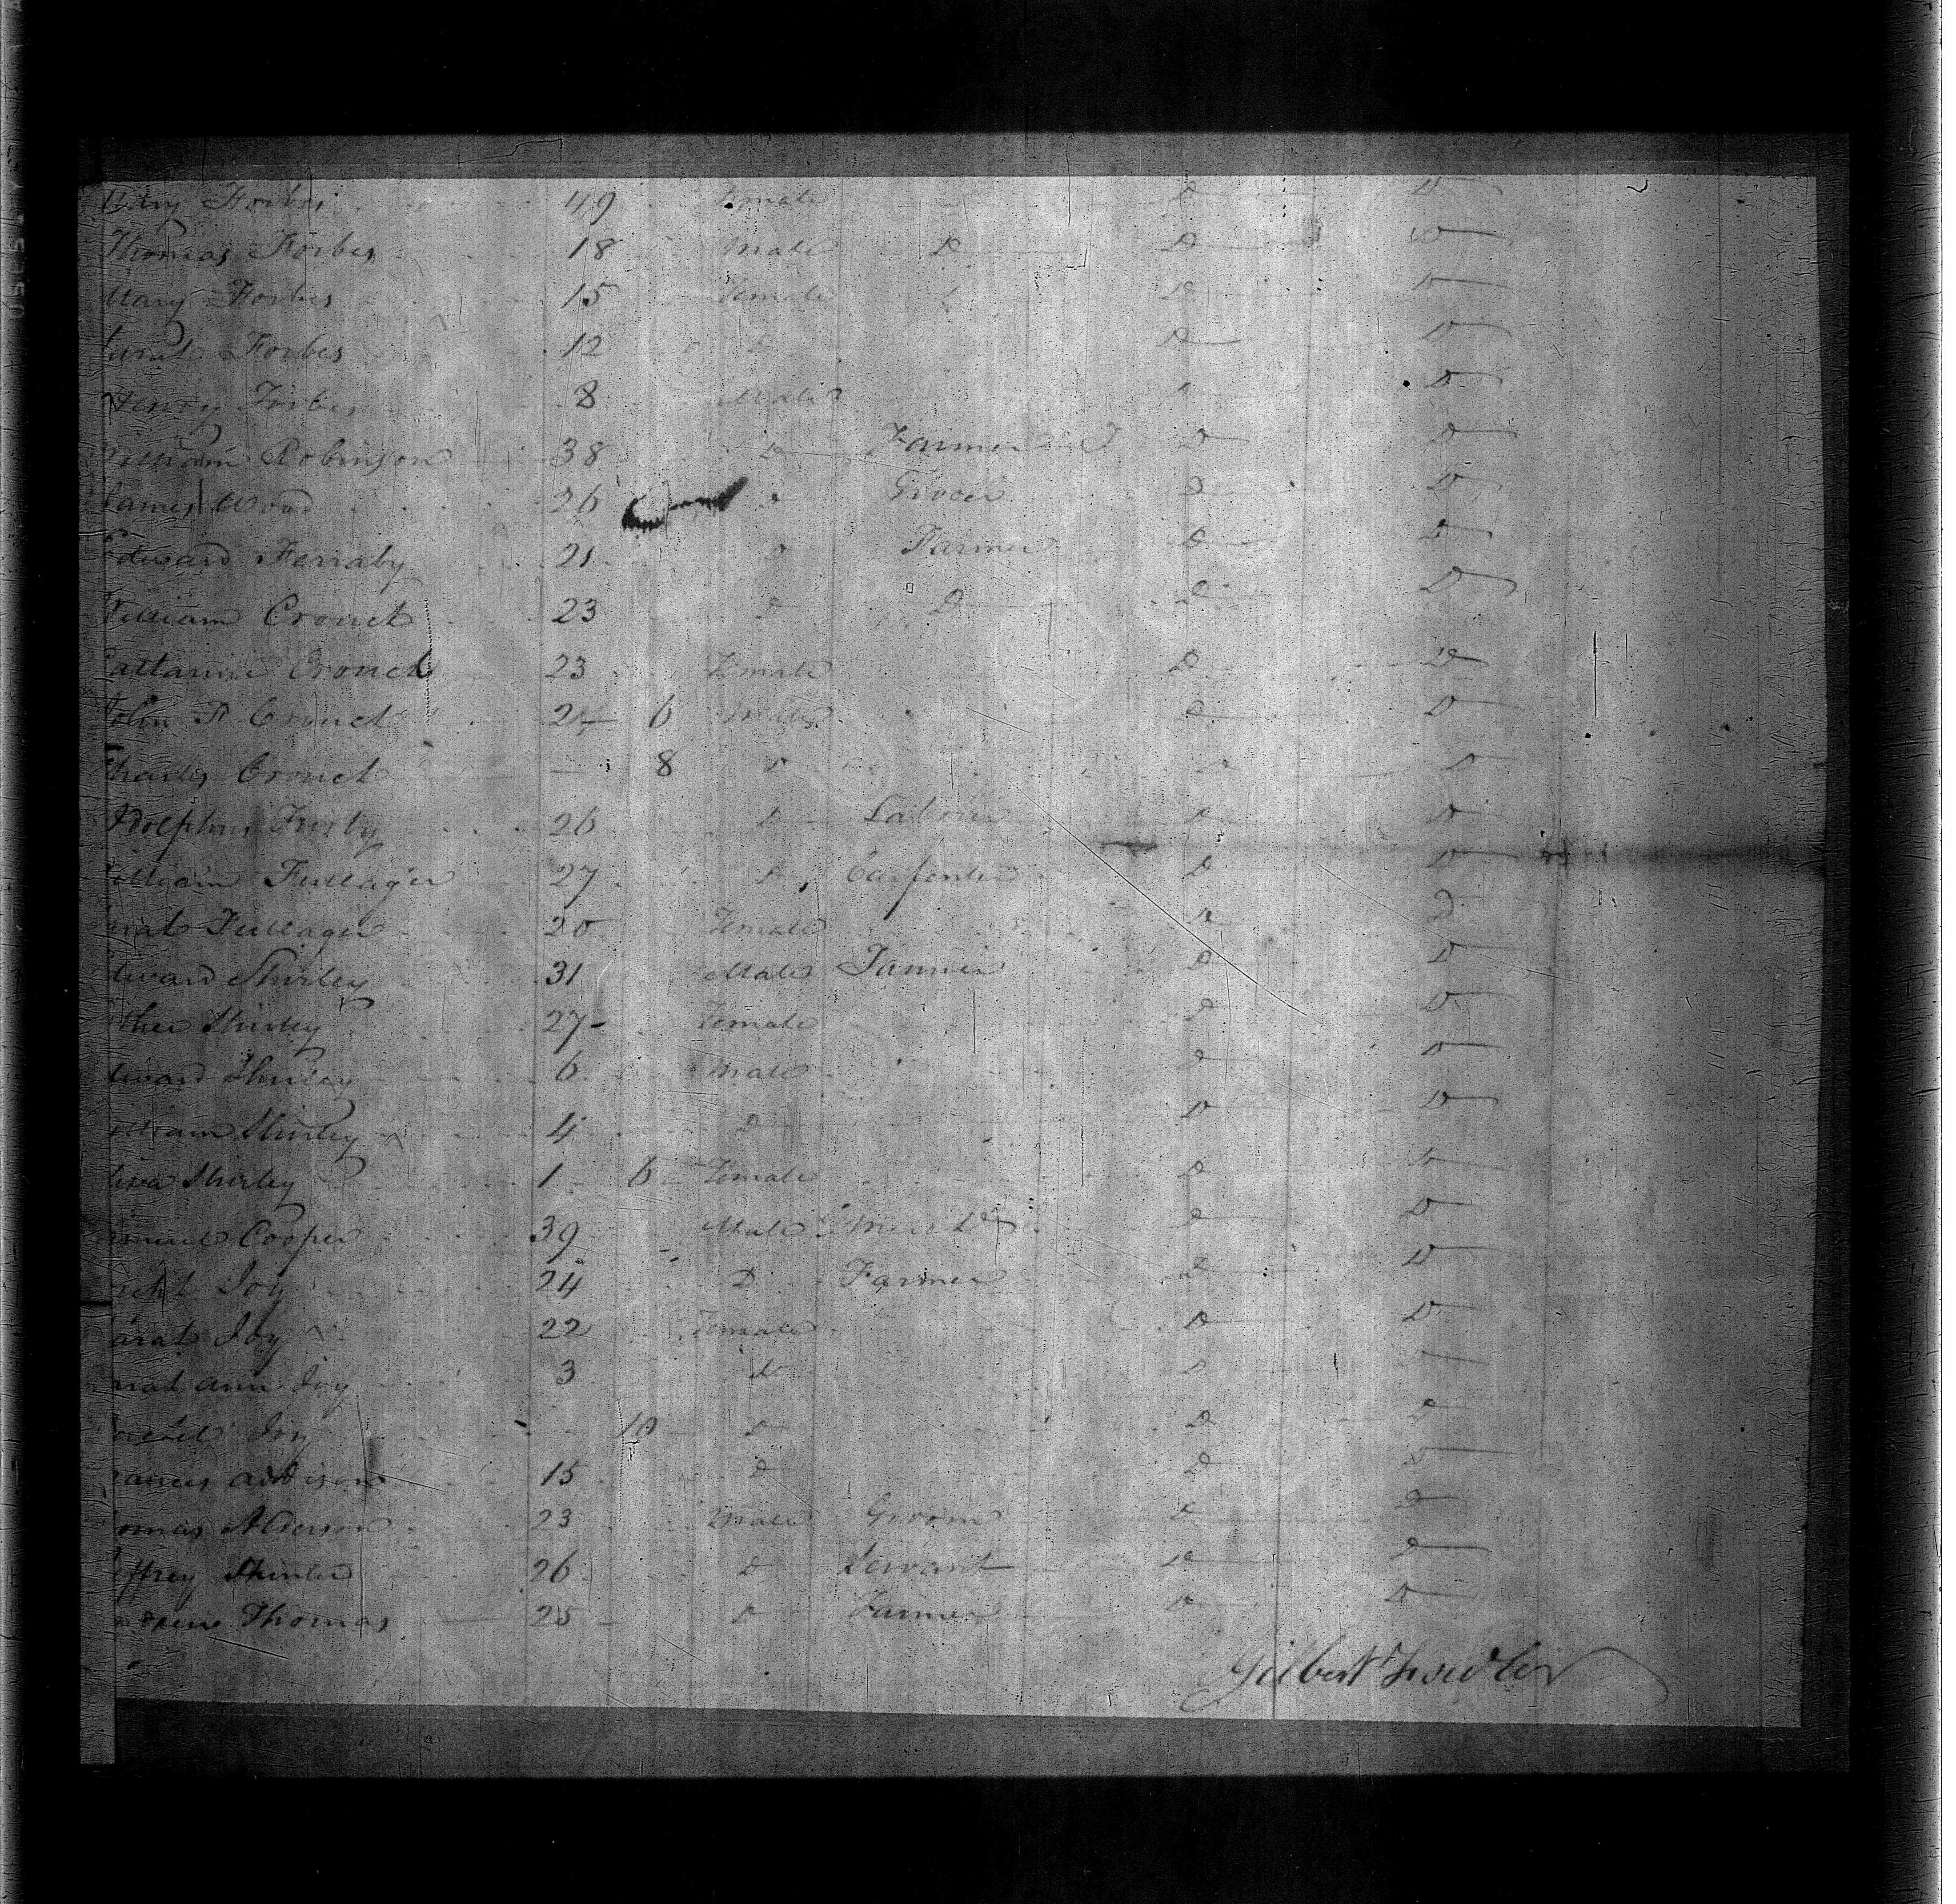 Mary Forbes 49 Female D D
Thomas Forbes 18 Male D D D
Mary Forbes 15 Female D D
Forbes 12 D D D
Henry Forbes 8 Male D D
William Robinson 38 D Farmer D D
James Wood 26 D Grocer D D
Edward Ferraby 21 D Farmer D D
William Crouch 23 D D D D
Catharine Crouch 23 Female D D
John F Crouch 2 6 Male D D
Charles Crouch — 8 D D D
Adolphus Frisby 26 D Labourer D D
William Fulleager 27 D Carpenter D D
Fulleager 20 Female D D
dward Shirley 31 Male Farmer D D
ther Shirley 27 Female D D
dward Shirley 6 Male D D
illiam Shirley 4 D D D
liza Shirley 1 6 Female D D
Cooper 39 Male D D
Joy 24 D Farmer D D
arah Joy 22 Female D D
ann Joy 3 D D D
Joy 10 D D D
rances Addison 15 D D D
omas Alderson 23 Male Groom D D
effrey 26 D Servant D D
Thomas 25 D Farmer D D
Gilbert Fowler